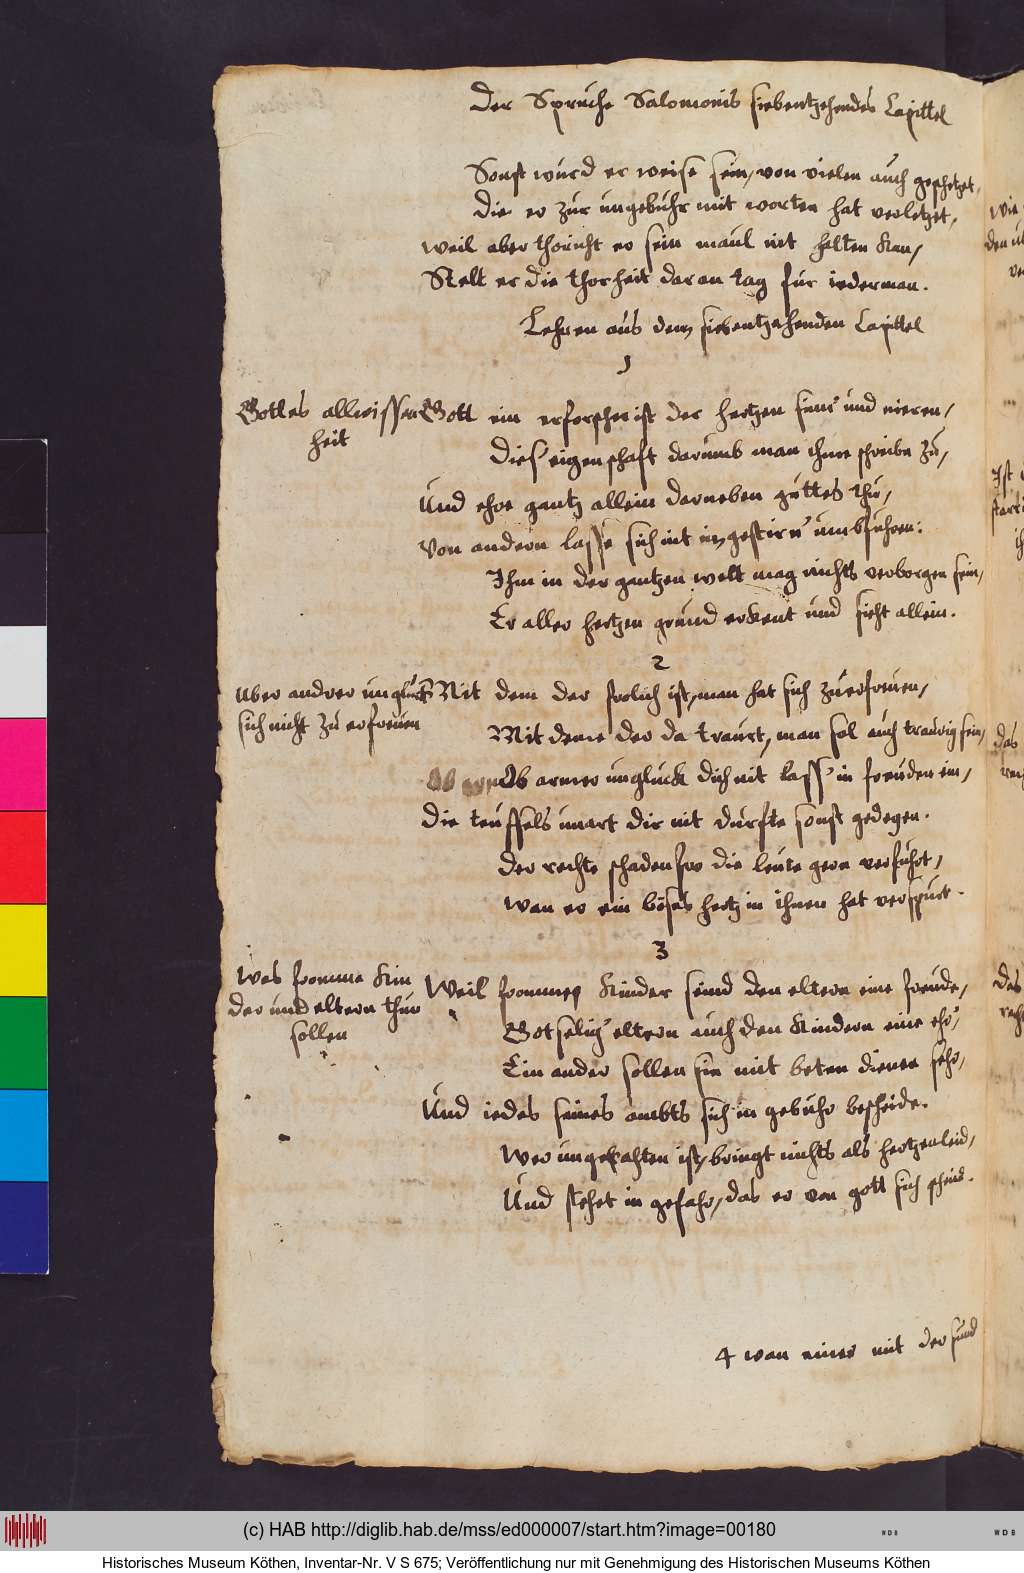 Der Spruche Salomonis siebentzehendes Capittel
Sonst wurd er weise sein, von vielen auch geschetzet,
Die er zur ungebuhr mit worten hat verletzet,
Weil aber thöricht er sein maul nit halten kan,
Stelt er die thorheit dar an tag für iederman.
Lehren aus dem siebentzehenden Capittel
1
Gottes allwissen
heit
Gott ein erforscher ist der hertzen sinn' und nieren,
Dies' eigenschaft darumb man ihme schreibe zu,
Und ehre gantz allein darneben guttes thu,
Von andern lasse sich nit im gestirn umbfuhren:
Ihm in der gantzen welt mag nichts verborgen sein,
Er aller hertzen grund erkent und sieht allein.
2
Uber andrer ungluck
sich nicht zu erfreuen
Mit dem der frolich ist, man hat sich zuerfreuen,
Mit deme der da traurt, man sol auch traurig sein,
Ob armer ungluck dich nit lass' in freuden ein,
Die teuffels unart dir nit durfte sonst gedegen.
Der rechte schadenfro die leute gern verfuhrt,
Wan er ein böses hertz in ihnen hat verspurt.
3
Was fromme Kin
der und eltern thun
sollen
Weil frommer Kinder seind den eltern eine freude,
Gotselig' eltern auch den Kindern eine ehr',
Ein ander sollen sie mit beten dienen sehr,
Und iedes seines ambts sich in gebuhr bescheide.
Wer ungerahten ist, bringt nichts als hertzenleid,
Und stehet in gefahr, das er von gott sich scheid.
4 wan einer mit der sund
(c) HAB http://diglib.hab.de/mss/ed000007/start.htm?image=00180
WDB
WDB
Historisches Museum Köthen, Inventar-Nr. V S 675; Veröffentlichung nur mit Genehmigung des Historischen Museums Köthen